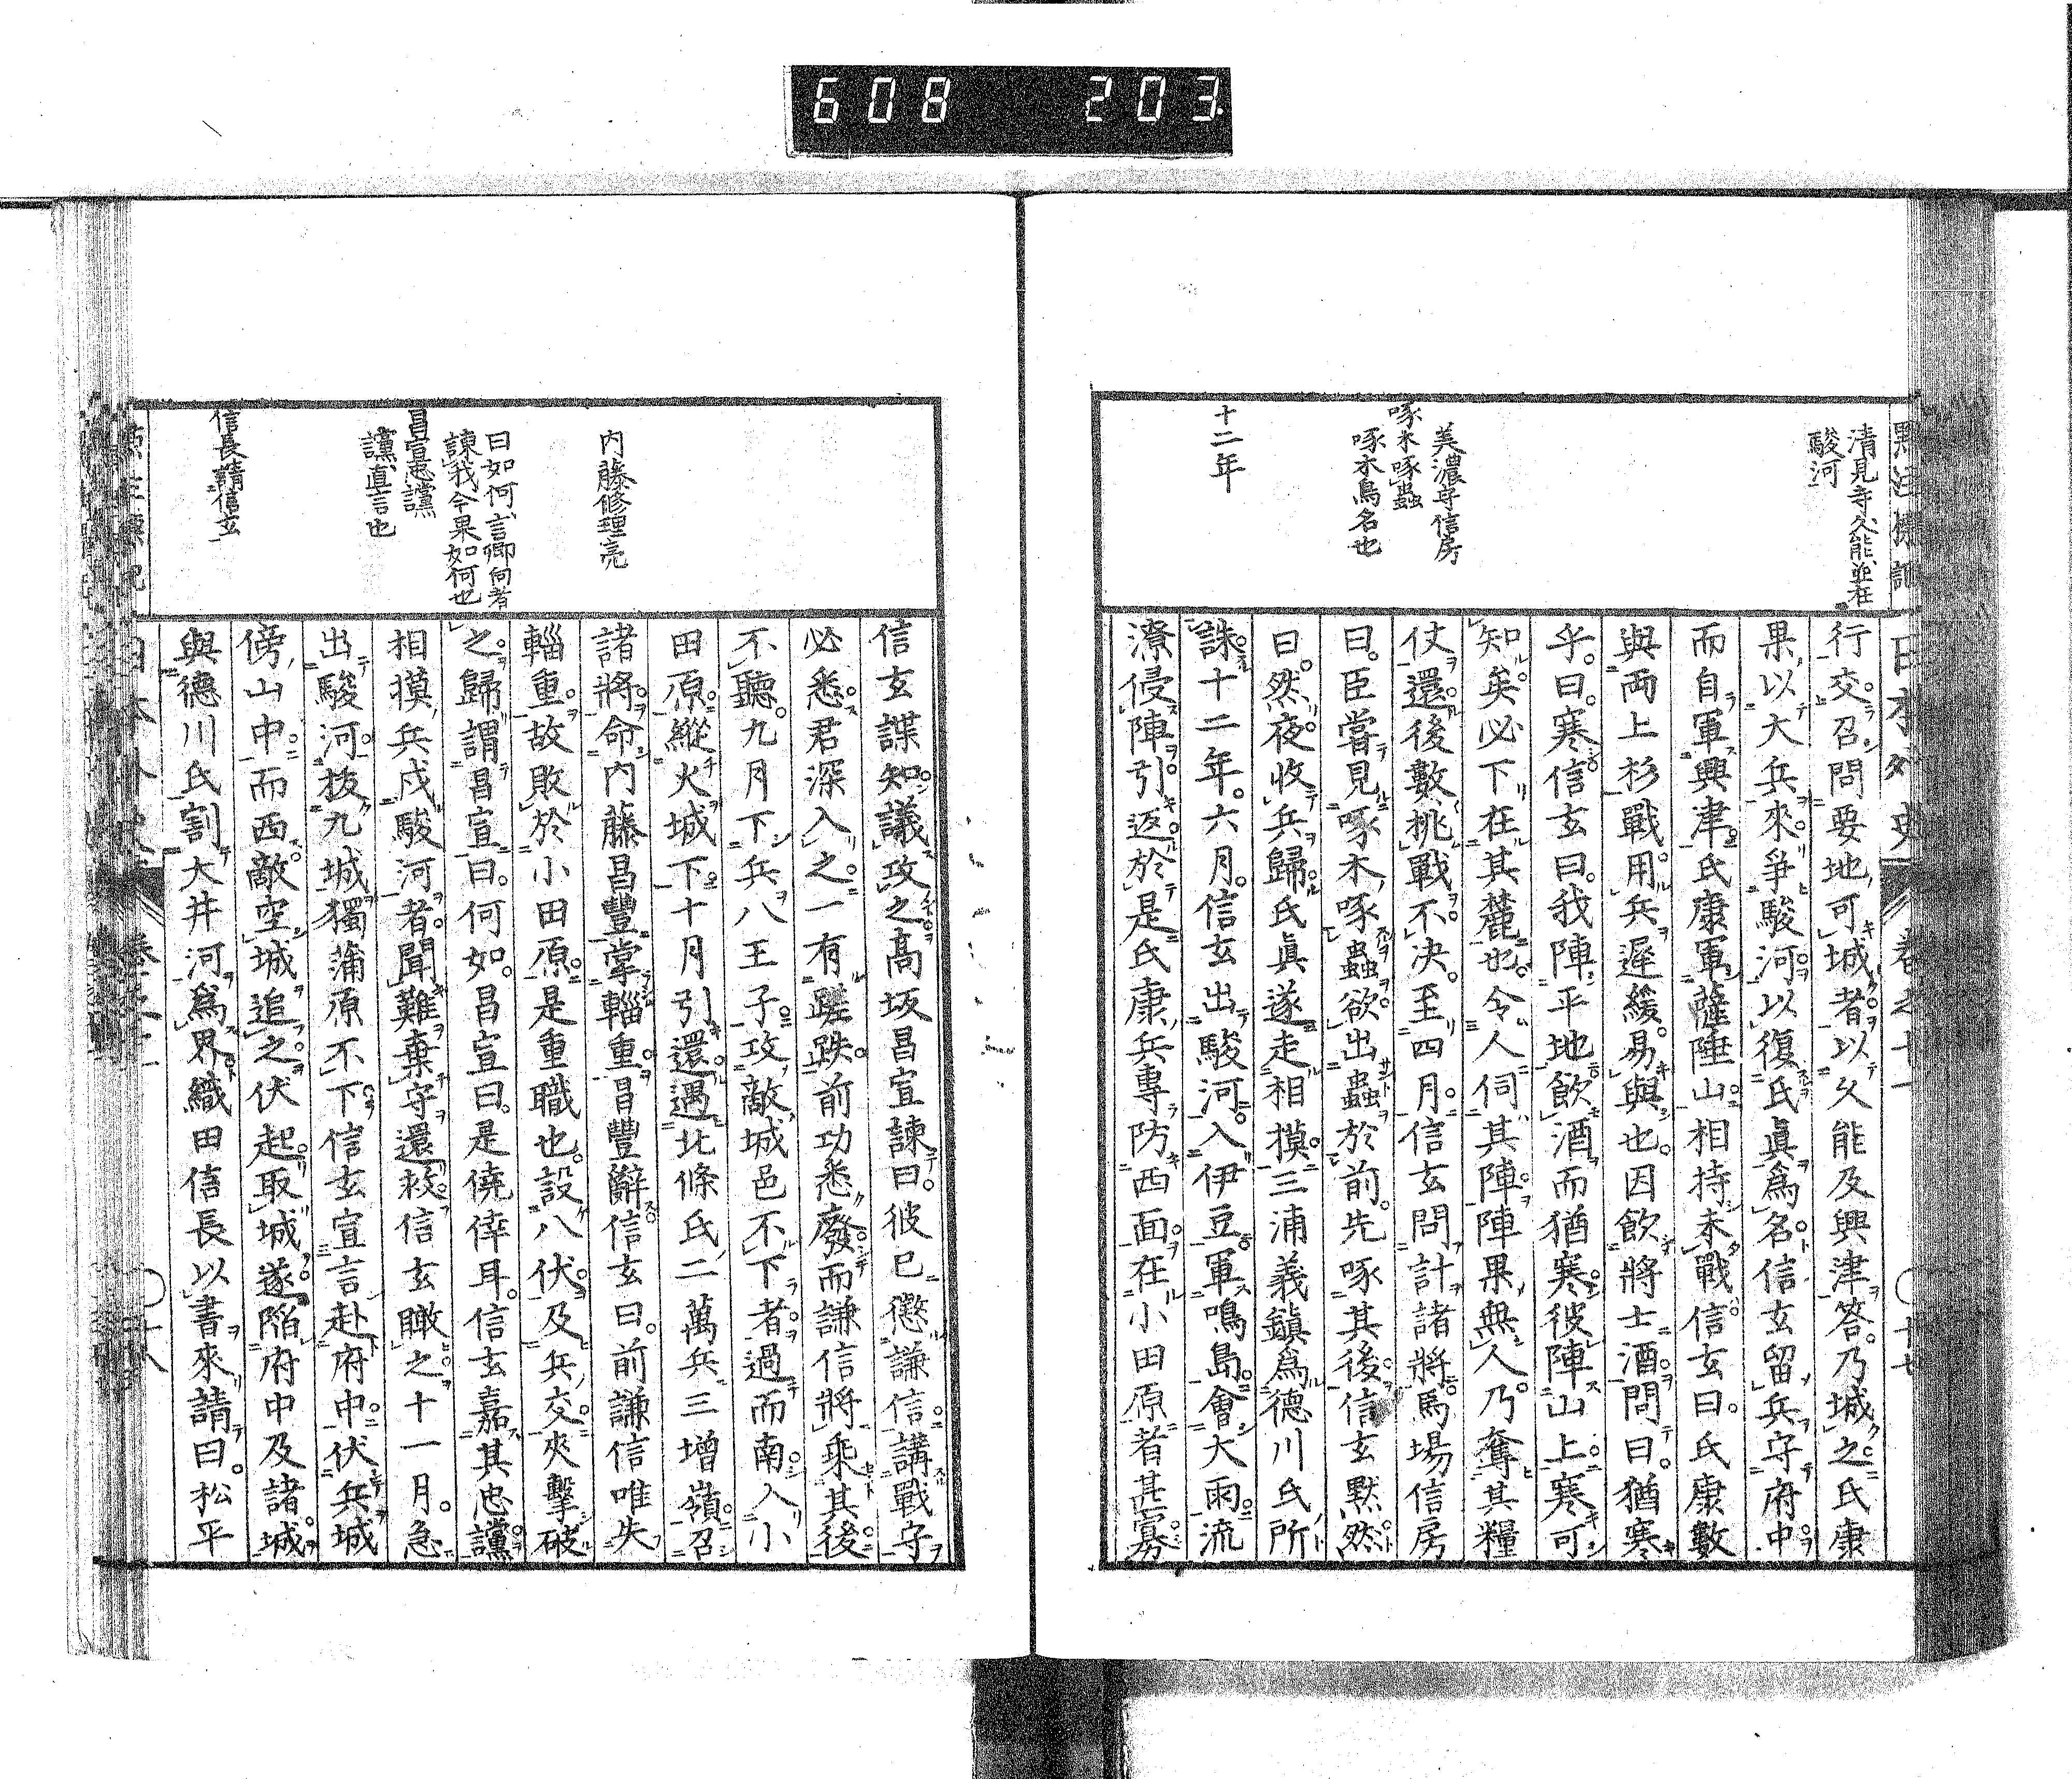 608 203
清見寺久能並在
駿河
美濃守信房
啄木啄蟲
啄木鳥名也
十二年
行交召問要地可城者以久能及興津答乃城之氏康
果以大兵來爭駿河以復氏眞爲名信玄留兵守府中
而自軍興津氏康軍薩陲山相持未戰信玄曰氏康數
與両上杉戰用兵遲緩易與也因飲將士酒問曰猶寒
乎曰寒信玄曰我陣平地飲酒而猶寒彼陣山上寒可
知矣必下在其麓也令人伺其陣陣果無人乃奪其糧
仗還後數挑戰不决至四月信玄問計諸將馬場信房
曰臣嘗見啄木啄蟲欲出蟲於前先啄其後信玄默然
曰然夜收兵歸氏眞遂走相摸三浦義鎭爲德川氏所
誅十二年六月信玄出駿河入伊豆軍鳴島會大雨流
潦侵陣引返於是氏康兵專防西面在小田原者甚寡
内藤修理亮
曰如何言卿向者
諫我今果如何也
昌宣忠讜
讜直言也
信長講信玄
信玄諜知議攻之高坂昌宣諫曰彼已懲謙信講戰守
必悉君深入之一有蹉跌前功悉廢而謙信將乘其後
不聽九月下兵八王子攻敵城邑不下者過而南入小
田原縱火城下十月引還遇北條氏二萬兵三增嶺召
諸將命内藤昌豐掌輜重昌豐辭信玄曰前謙信唯失
輜重故敗於小田原是重職也設八伏及兵交夾擊破
之歸謂昌宣曰何如昌宣曰是僥倖耳信玄嘉其忠讜
相摸兵戍駿河者聞難棄守還救信玄瞰之十一月急
出駿河拔九城獨蒲原不下信玄宣言赴府中伏兵城
傍山中而西敵空城追之伏起取城遂陷府中及諸城
與德川氏割大井河爲界織田信長以書來請曰松平